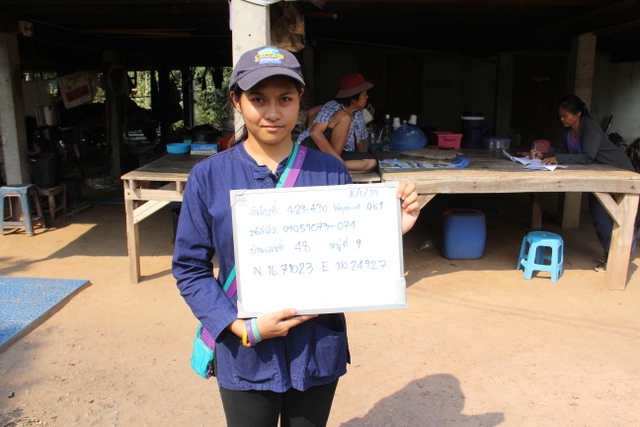 8/1/59
429-430 Waypoint 061
09057073-074
บ้านเลขที่ 48 หมู่ที่ 9
N 16.71023 E 100.24927